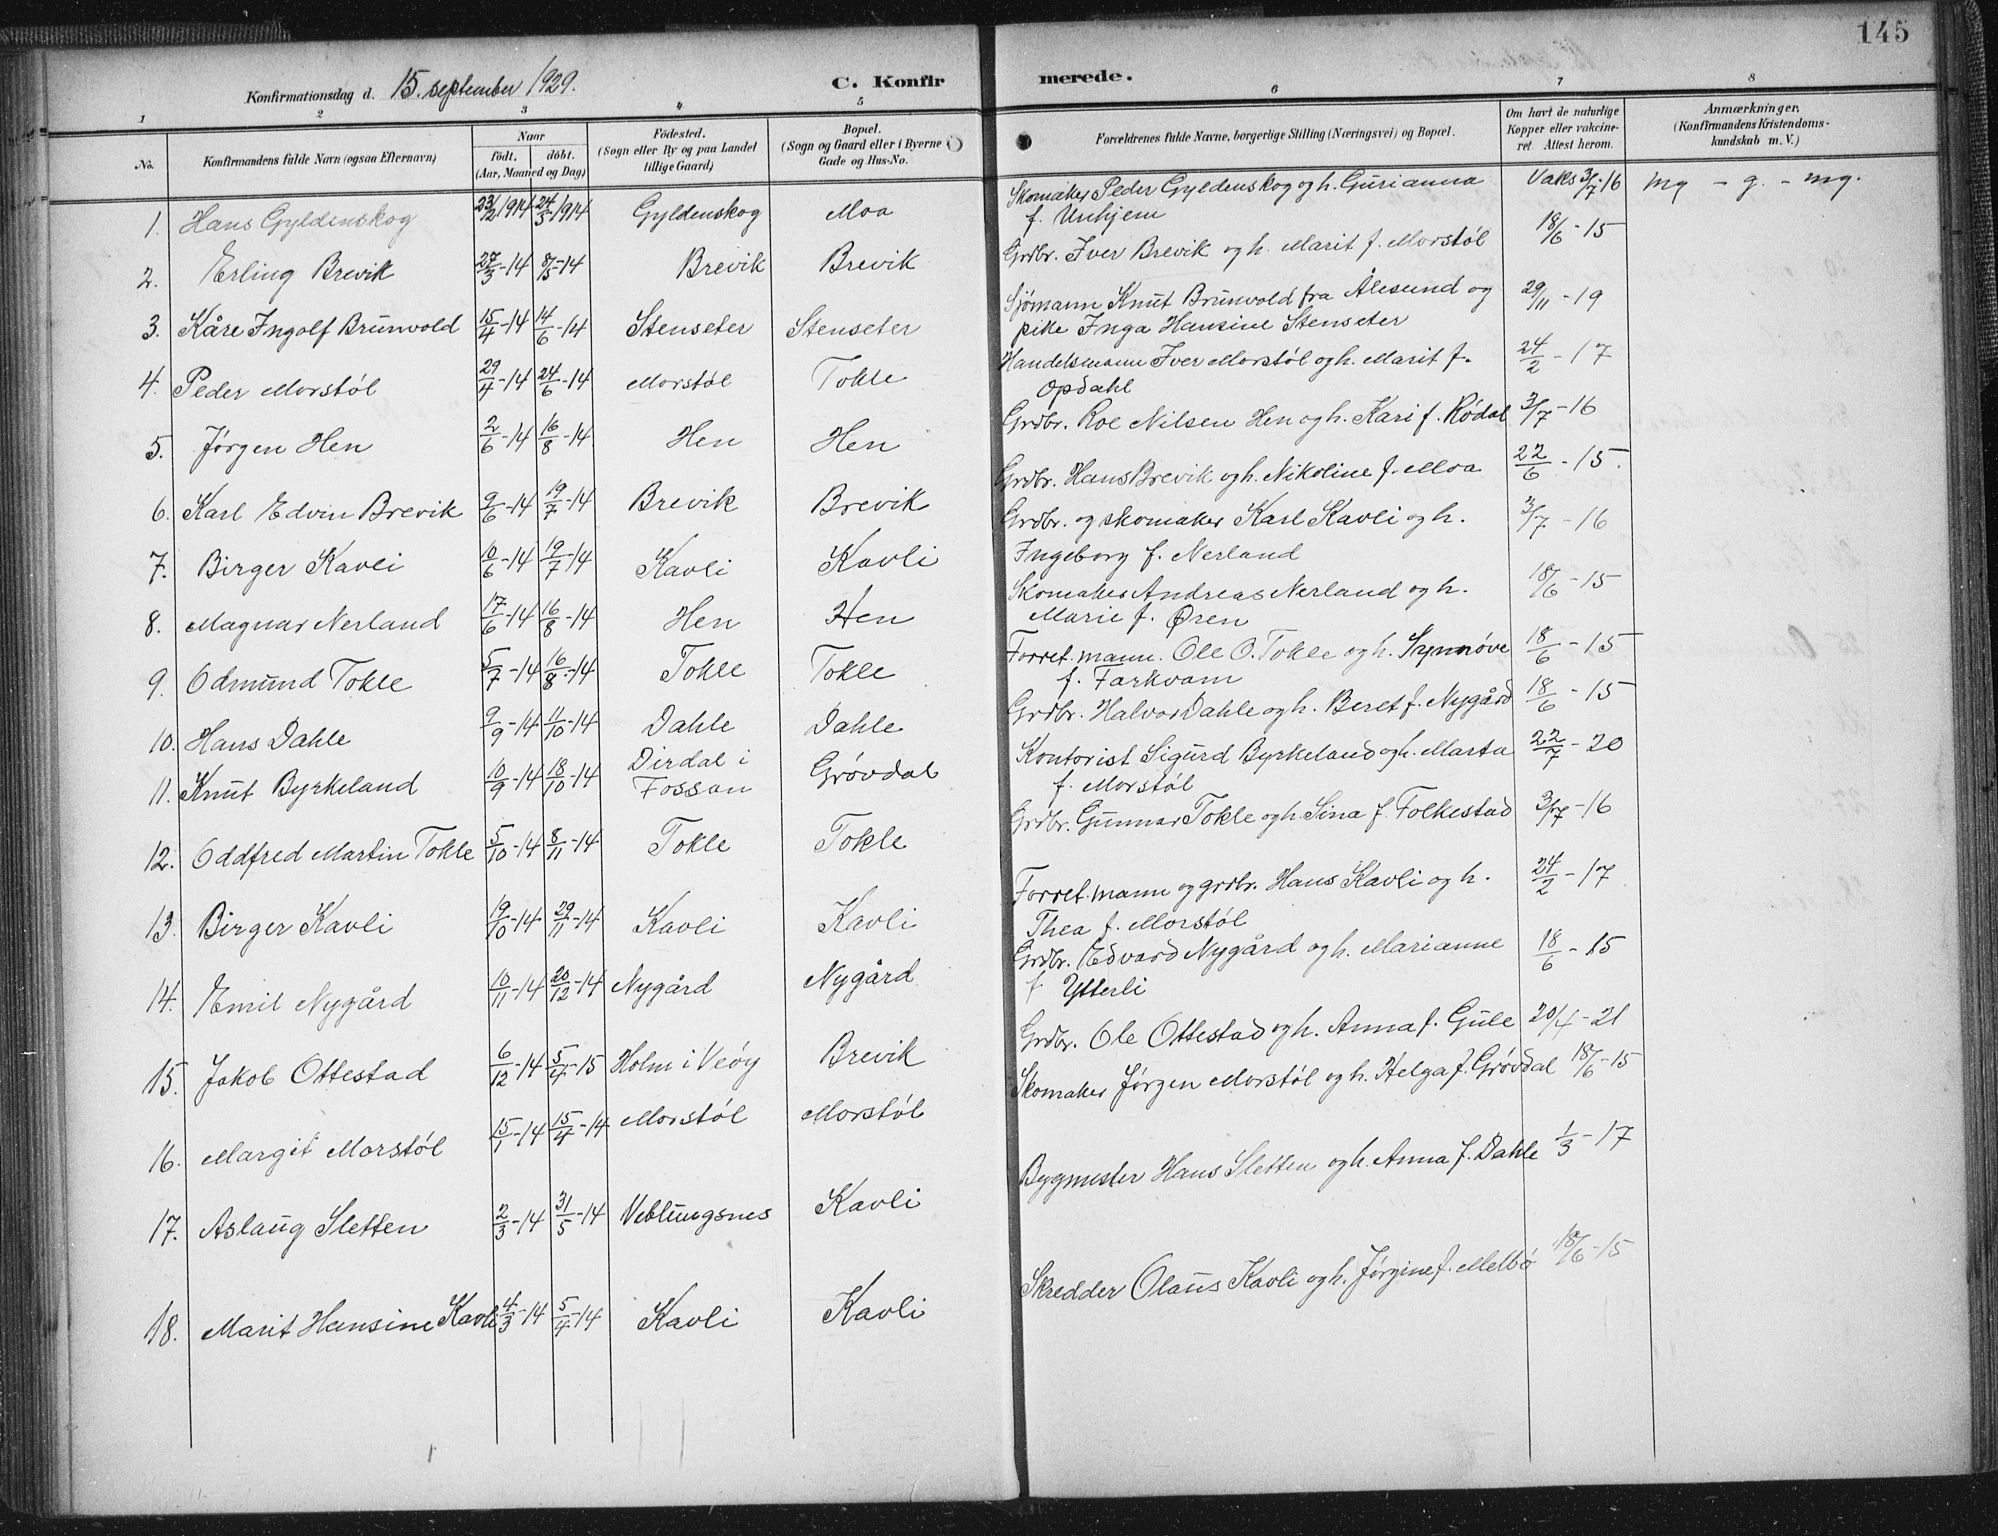 145
Konfirmationsdag d. 15. september 1929. C. Konfirmerede.
1 2 3 4 5 6 7 8
No. Konfirmandens fulde Navn (ogsaa Efternavn) Naar født. døbt. (Aar, Maaned og Dag) Fødested. (Sogn eller By og paa Landet tillige Gaard) Bopæl. (Sogn og Gaard eller i Byerne Gade og Hus-No. Forældrenes fulde Navne, borgerlige Stilling (Næringsvei) og Bopæl. Om havt de naturlige Kopper eller vakcineret. Attest herom. Anmærkninger. (Konfirmandens Kristendomskundskab m. V.)
1. Hans Gyldenskog 23/2 1914 24/3 1914 Gyldenskog Moa Skomaker Peder Gyldenskog og h. Gurianna f. Unhjem Vaks 3/7-16 mg - g. - mg.
2. Erling Brevik 27/3-14 8/5-14 Brevik Brevik Grdbr. Iver Brevik og h. Marit f. Morstøl 18/6-15
3. Kåre Ingolf Brunvold 15/4-14 14/6-14 Stenseter Stenseter Sjømann Knut Brunvold fra Ålesund og pike Inga Hansine Stenseter 29/11-19
4. Peder Morstøl 29/4-14 24/6-14 Morstøl Tokle Handelsmann Iver Morstøl og h. Marit f. Opdahl 24/2-17
5. Jørgen Hen 2/6-14 16/8-14 Hen Hen Grdbr. Roe Nilsen Hen og h. Kari f. Rødal 3/7-16
6. Karl Edvin Brevik 9/6-14 19/7-14 Brevik Brevik Grdbr. Hans Brevik og h. Nikoline f. Moa 22/6-15.
7. Birger Kavli 10/6-14 19/7-14 Kavli Kavli Grdbr. og skomaker Karl Kavli og h. Ingeborg f. Nerland 3/7-16
8. Magnar Nerland 17/6-14 16/8-14 Hen Hen Skomaker Andreas Nerland og h. Marie f. Øren 18/6-15
9. Odmund Tokle 5/7-14 16/8-14 Tokle Tokle Forret.mann. Ole O. Tokle og h. Synnøve f. Farkvam 18/6-15
10. Hans Dahle 9/9-14 11/10-14 Dahle Dahle Grdbr. Halvor Dahle og h. Beret f. Nygård 18/6-15
11. Knut Byrkeland 10/9-14 18/10-14 Dirdal i Fossan Grøvdal Kontorist Sigurd Byrkeland og h. Marta f. Morstøl 22/7-20
12. Oddfred Martin Tokle 5/10-14 8/11-14 Tokle Tokle Grdbr. Gunnar Tokle og h. Sina f. Folkestad 3/7-16
13. Birger Kavli 19/10-14 29/11-14 Kavli Kavli Forret.mann og grdbr. Hans Kavli og h. Thea f. Morstøl 24/2-17
14. Emil Nygård 10/11-14 20/12-14 Nygård Nygård Grdbr. Edvard Nygård og h. Marianne f. Ytterli 18/6-15
15. Jakob Ottestad 6/12-14 5/4-15 Holm i Veøy Brevik Grdbr. Ole Ottestad og h. Anna f. Gule 20/4-21
16. Margit Morstøl 15/1-14 15/4-14 Morstøl Morstøl Skomaker Jørgen Morstøl og h. Helga f. Grøvdal 18/6-15
17. Aslaug Sletten 2/3-14 31/5-14 Veblungsnes Kavli Bygmester Hans Sletten og h. Anna f. Dahle 1/3-17
18. Marit Hansine Kavli 4/3-14 5/4-14 Kavli Kavli Skredder Olaus Kavli og h. Jørgine f. Melbø 18/6-15